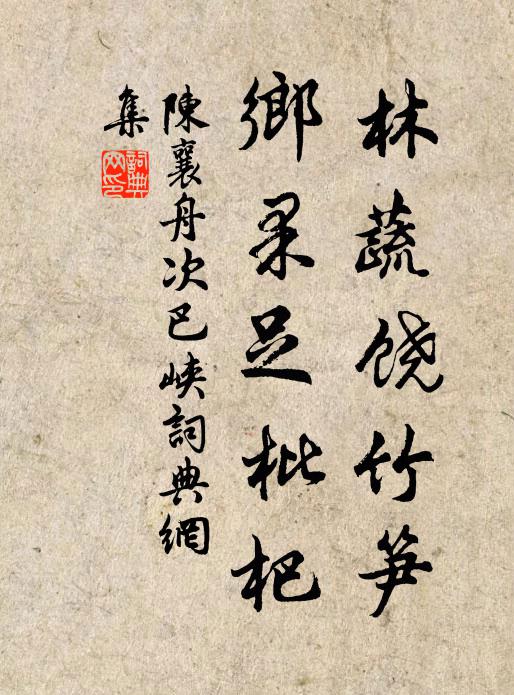 林蔬饶竹笋
鄉果足枇杷
陳襄舟次巴峽詞典網
集
詞典
网印